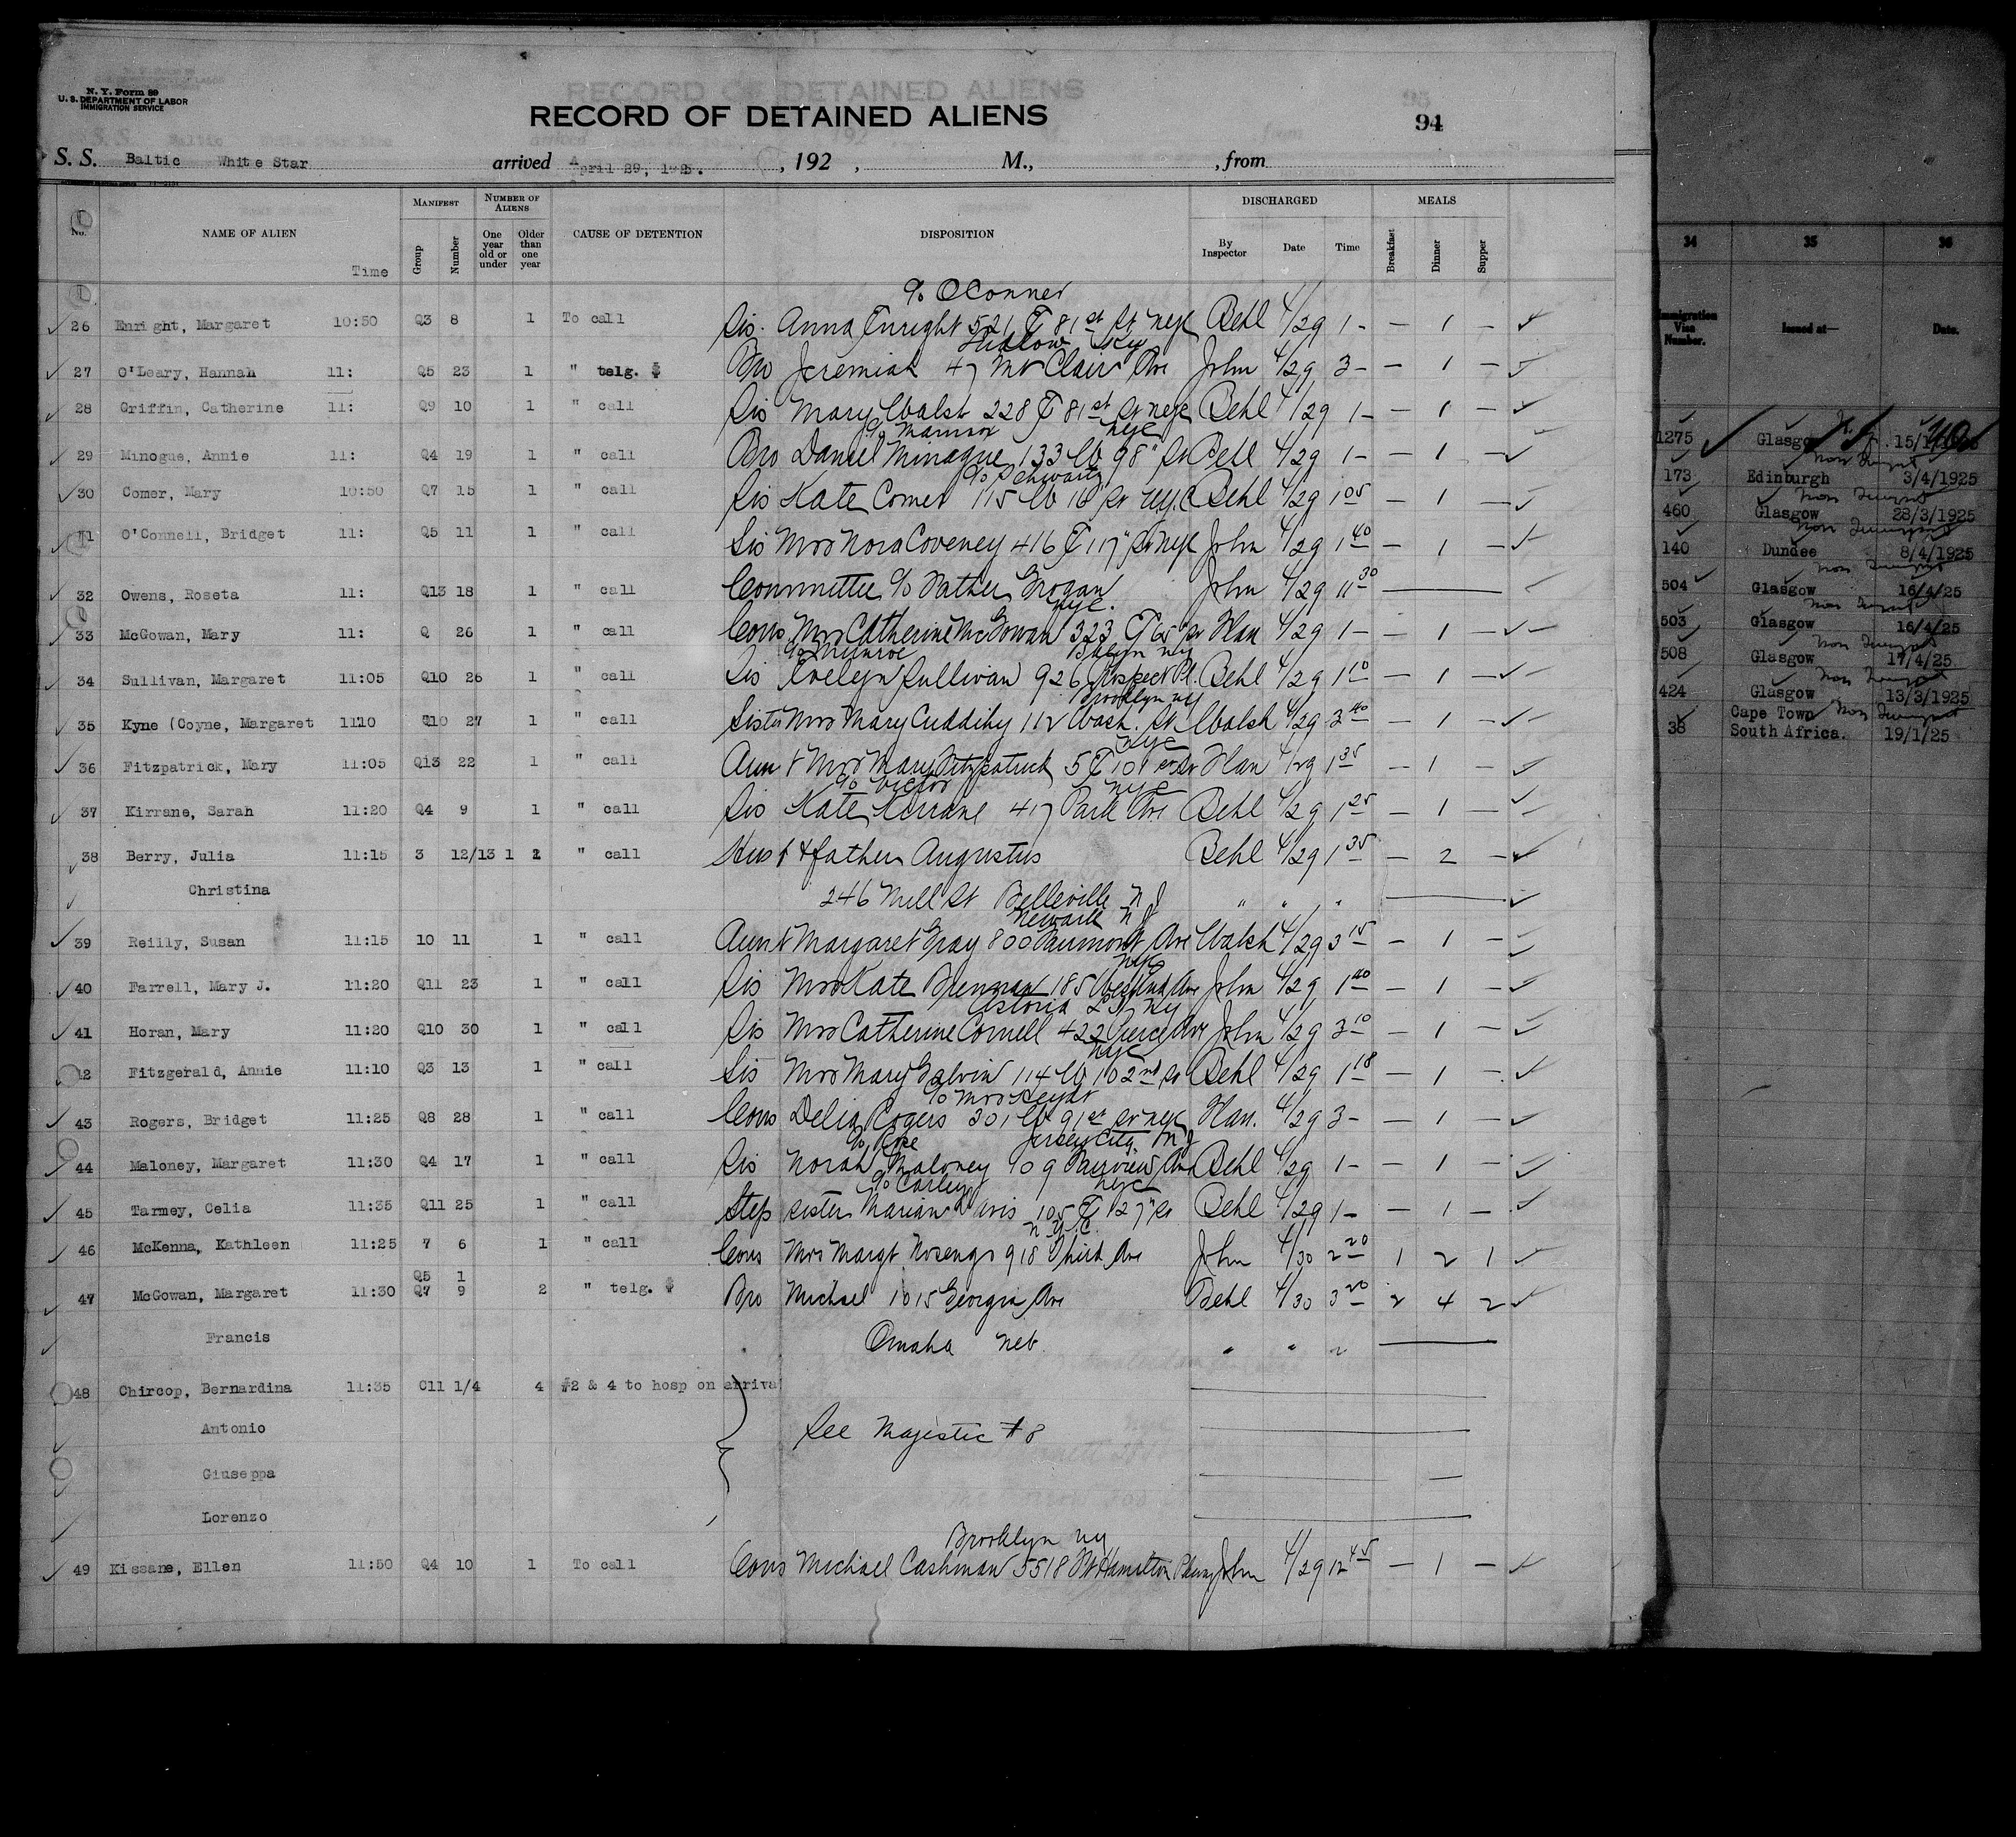 N. Y. Form 89
U. S. DEPARTMENT OF LABOR
IMMIGRATION SERVICE
RECORD OF DETAINED ALIENS
94
S. S. Baltic White Star arrived April 29, 1925. , 192 , M., , from
No. NAME OF ALIEN Time MANIFEST Group Number NUMBER OF ALIENS One year old or under Older than one year CAUSE OF DETENTION DISPOSITION DISCHARGED By Inspector Date Time MEALS Breakfast Dinner Supper
c/o OConner
26 Enright, Margaret 10:50 Q3 8 1 To call Sis. Anna Enright 521 E 81st St nyc Behl 4/29 1- – 1 –
Ludlow Ky
27 O'Leary, Hannah 11: Q5 23 1 " telg. $ Bro Jeremiah 47 Mt Clair Ave John 4/29 3- – 1 –
28 Griffin, Catherine 11: Q9 10 1 " call Sis Mary Walsh 228 E 81st St nyc Behl 4/29 1- – 1 –
nyc
29 Minogue, Annie 11: Q4 19 1 " call Bro Daniel Minogue 133 W 98" St Behl 4/29 1- – 1 –
c/o Schwartz
30 Comer, Mary 10:50 Q7 15 1 " call Sis Kate Comer 115 W St nyc Behl 4/29 1 05 – 1 –
31 O'Connell, Bridget 11: Q5 11 1 " call Sis Mrs Nora Coveney 416 E 117" St nyc John 4/29 1 40 – 1 –
32 Owens, Roseta 11: Q13 18 1 " call Committee c/o Father Grogan John 4/29 11 30
nyc.
33 McGowan, Mary 11: Q 26 1 " call Cous Mrs Catherine McGowan 323 E 65 St Han 4/29 1- – 1 –
c/o Munroe Bklyn ny
34 Sullivan, Margaret 11:05 Q10 26 1 " call Sis Evelyn Sullivan 926 Prospect Pl. Behl 4/29 1 10 – 1 –
Brooklyn ny
35 Kyne (Coyne, Margaret 1110 Q10 27 1 " call Sister Mrs Mary Cuddihy 112 Wash. St. Walsh 4/29 3 40 – 1 –
nyc
36 Fitzpatrick, Mary 11:05 Q13 22 1 " call Aunt Mrs Mary Fitzpatrick 5 E 101 St Han 4/29 1 35 – 1 –
c/o Victor nyc
37 Kirrane, Sarah 11:20 Q4 9 1 " call Sis Kate Kirrane 417 Park Ave Behl 4/29 1 25 – 1 –
38 Berry, Julia 11:15 3 12/13 1 1 " call Hus & father Augustus Behl 4/29 1 35 – 2 –
Christina 246 Mill St Belleville N J " " "
Newark N J
39 Reilly, Susan 11:15 10 11 1 " call Aunt Margaret Gray 800 Ave Walsh 4/29 3 15 – 1 –
nyc
40 Farrell, Mary J. 11:20 Q11 23 1 " call Sis Mrs Kate Brennan 185 West End Ave John 4/29 1 40 – 1 –
Astoria L I NY
41 Horan, Mary 11:20 Q10 30 1 " call Sis Mrs Catherine Cornell 422 Pierce Ave John 4/29 3 10 – 1 –
nyc
42 Fitzgerald, Annie 11:10 Q3 13 1 " call Sis Mrs Mary Galvin 114 W 102nd St Behl 4/29 1 18 – 1 –
c/o Mrs
43 Rogers, Bridget 11:25 Q8 28 1 " call Cous Delia Rogers 301 W 91st St nyc Han. 4/29 3- – 1 –
c/o Jersey City N J
44 Maloney, Margaret 11:30 Q4 17 1 " call Sis Norah Maloney 109 Fairview Ave Behl 4/29 1- – 1 –
nyc
45 Tarmey, Celia 11:35 Q11 25 1 " call Step sister Marian Davis 105 E 127" St Behl 4/29 1- – 1 –
N.Y.C.
46 McKenna, Kathleen 11:25 7 6 1 " call Cous Mrs Margt 918 Third Ave John 4/30 2 20 1 2 1
Q5 1
47 McGowan, Margaret 11:30 Q7 9 2 " telg. $ Bro Michael 1015 Georgia Ave Behl 4/30 3 20 2 4 2
Francis Omaha Neb. " " "
48 Chircop, Bernardina 11:35 C11 1/4 4 #2 & 4 to hosp on arrival
Antonio See Majestic #8
Giuseppa
Lorenzo
Brooklyn ny
49 Kissane, Ellen 11:50 Q4 10 1 To call Cous Michael Cashman 5518 Ft Hamilton Pkway John 4/29 12 45 – 1 –
34 35 36
Immigration Visa Number. Issued at— Date.
1275 Glasgow 15/1/1925
173 Edinburgh 3/4/1925
460 Glasgow 23/3/1925
140 Dundee 8/4/1925
504 Glasgow 16/4/25
503 Glasgow 16/4/25
508 Glasgow 17/4/25
424 Glasgow 13/3/1925
38 Cape Town South Africa. 19/1/25